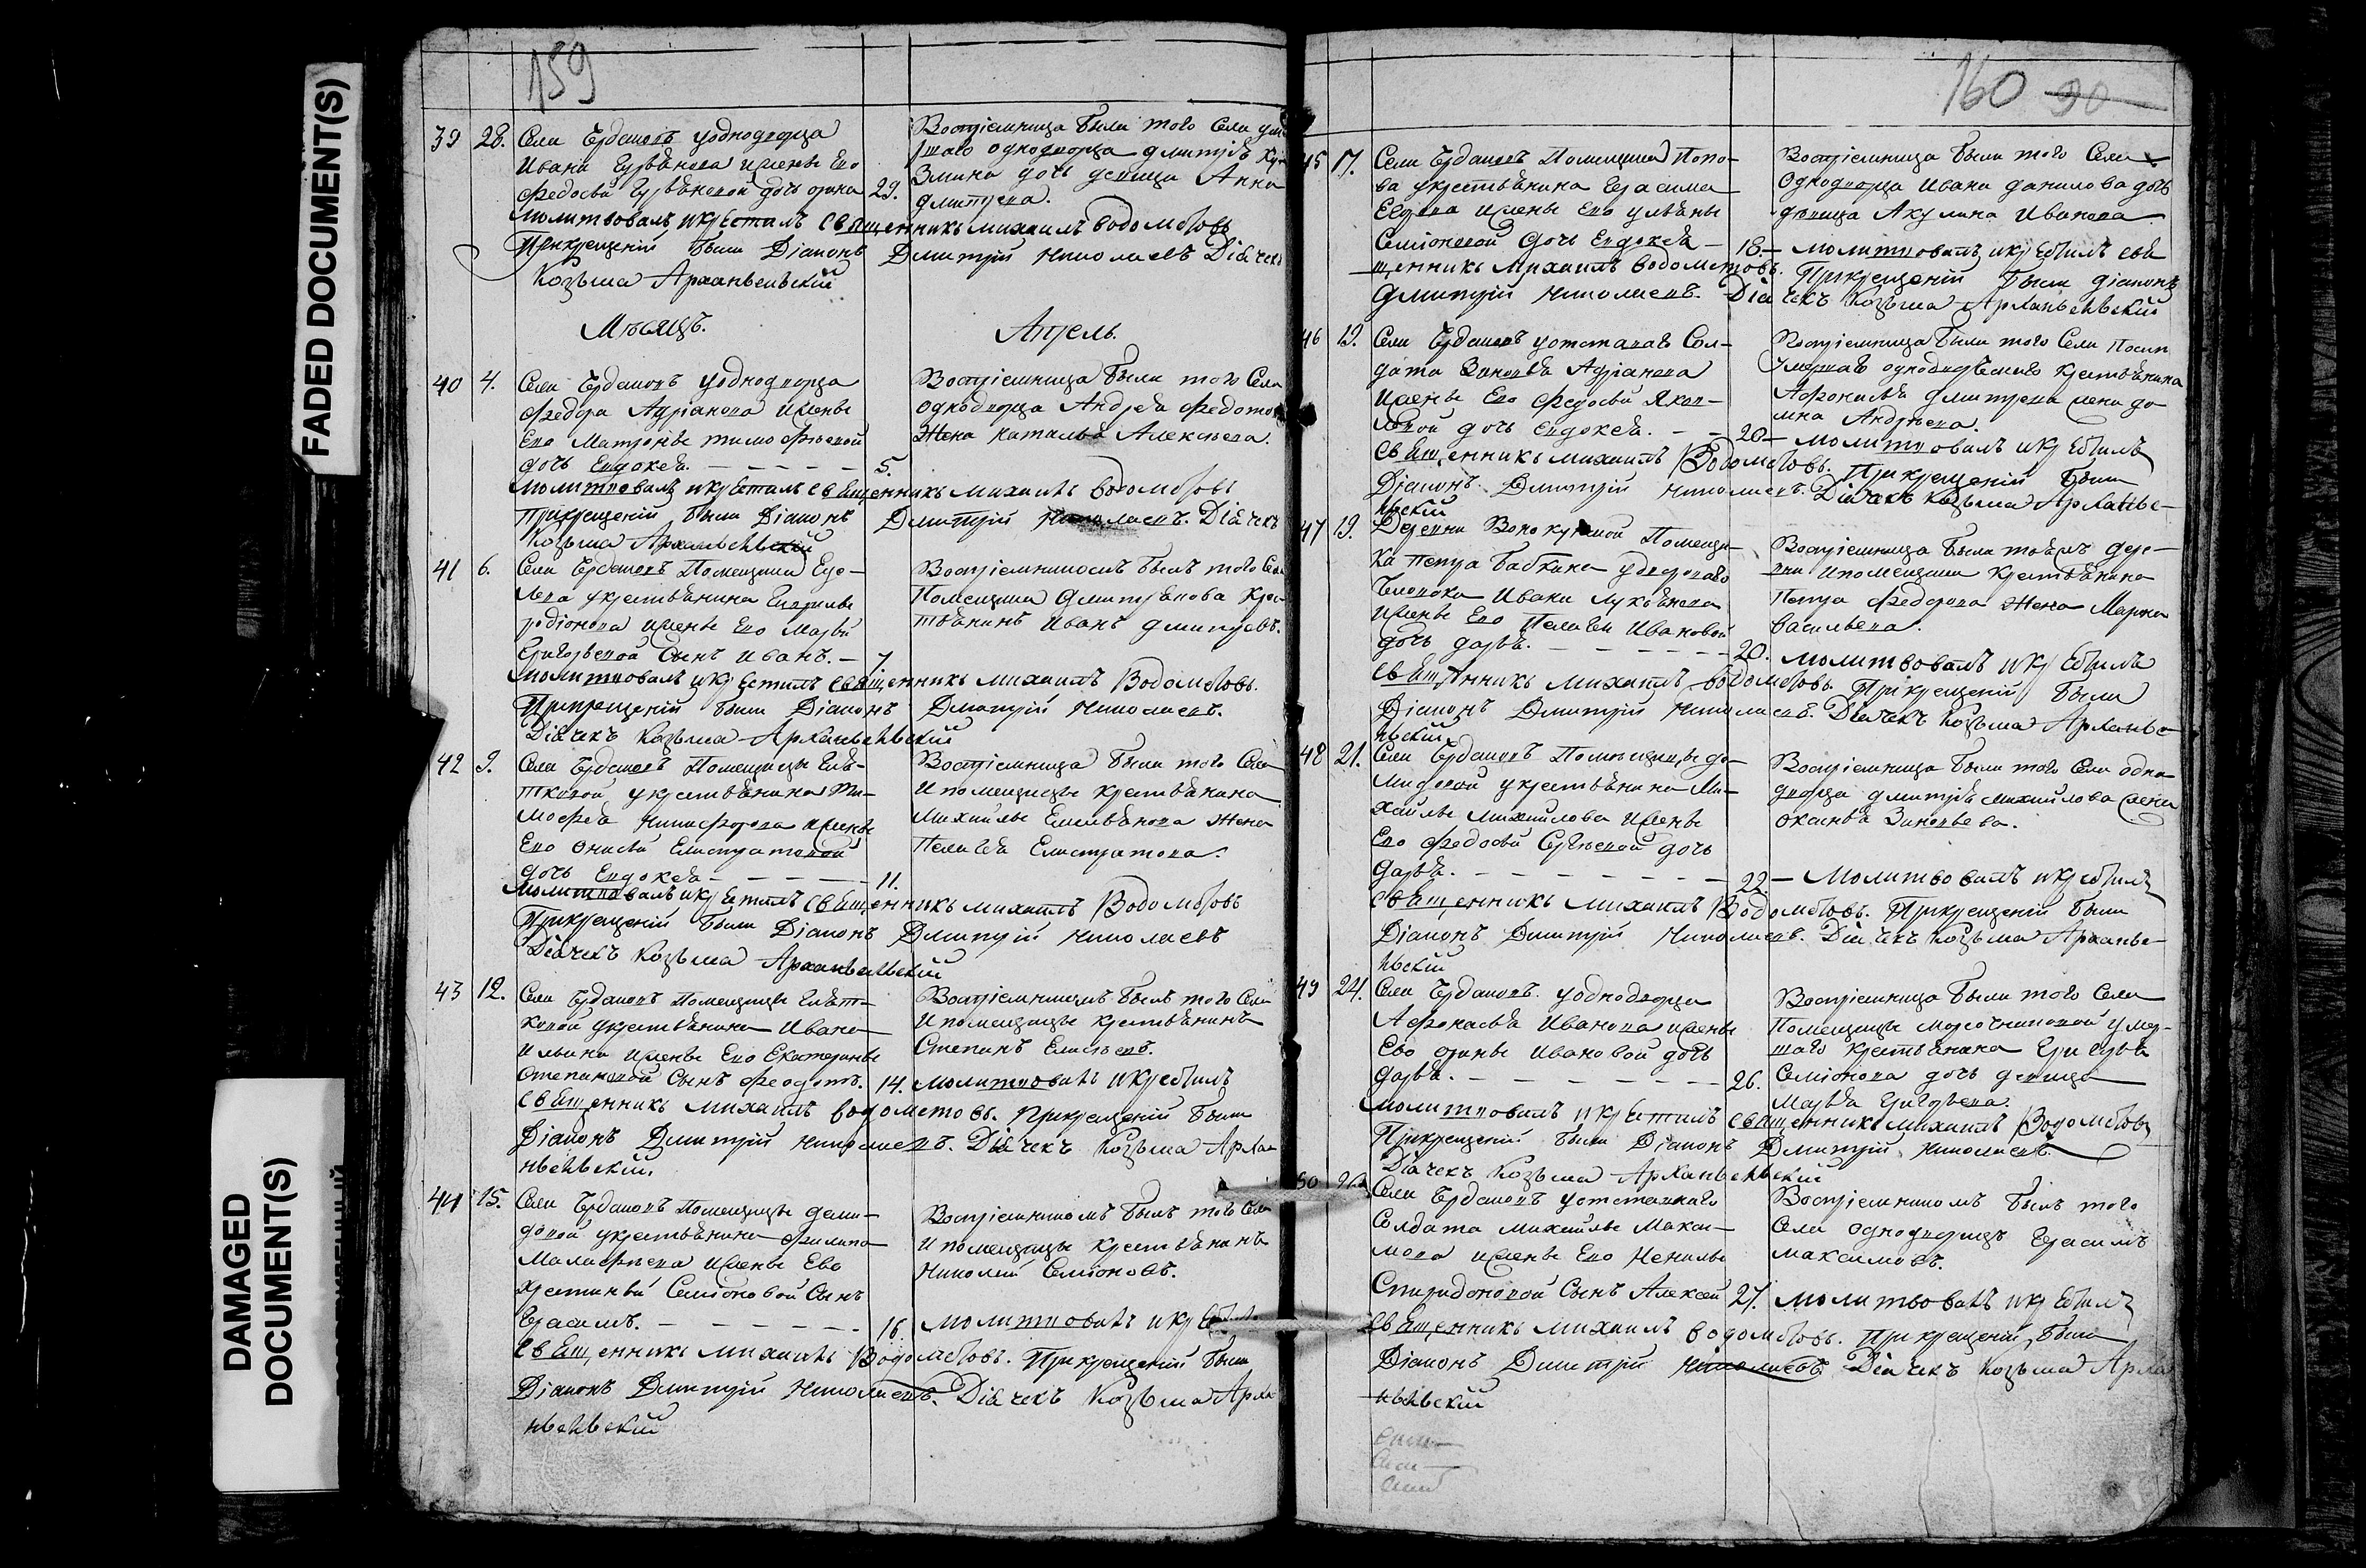 FADED DOCUMENT(S)
DAMAGED
DOCUMENT(S)
159
39 28. Села Ердановъ уоднодворца
Ивана Гурьянова ижены Его
Федосьи Гурьяновой дочь 29.
Воспріемница была того Села
шаго однодворца дмитрія
дочь девица Анна
дмитрева.
молитвовалъ икрестилъ священникъ михаилъ водометовъ
Прикрещеніи были Діаконъ Дмитрій николаевъ Діячекъ
Козьма Архангельскій
Мѣсяцъ. Апрель.
40 4. Села Ердановъ уоднодворца
Федора Адріанова ижены
Его Матроны тимофѣевой
дочь Евдокея. 5.
Воспріемница была того Села
однодворца Андрея федотова
жена наталья Алексѣева.
молитвовалъ икрестилъ священникъ михаилъ водометовъ
Прикрещеніи были Діаконъ Дмитрій николаевъ. Діячекъ
Козьма Архангельскій
41 6. Села Ердановъ Помещика
укрестьянина
родіонова ижены Его Марьи
Григорьевой Сынъ иванъ. 7.
Воспріемникомъ былъ того Села
Помещика дмитріянова кре-
стьянинъ иванъ дмитревъ.
молитвовалъ икрестилъ священникъ михаилъ Водометовъ.
Прикрещеніи были Діаконъ Дмитрій николаевъ.
Діячекъ Козьма Архангельскій
42 9. Села Ердановъ Помещицы Глѣ-
тковой укрестьянина ти-
мофея никифорова ижены
Его онисьи Елистратовой
дочь Евдокея 11.
Воспріемница была того Села
ипомещицы крестьянина
михайлы Емельянова жена
Пелагея Елистратова.
молитвовалъ икрестилъ священникъ михаилъ Водометовъ
Прикрещеніи были Діаконъ Дмитрій николаевъ
Діячекъ Козьма Архангельскій
43 12. Села Ердановъ Помещицы Глѣт-
ковой укрестьянина Ивана
ильина ижены Его Екатерины
Степановой Сынъ Феодотъ. 14.
Воспріемникомъ былъ того Села
ипомещицы крестьянинъ
Степанъ Елисѣевъ.
молитвовалъ икрестилъ
священникъ михаилъ водометовъ. Прикрещеніи были
Діаконъ Дмитрій николаевъ. Діячекъ Козьма Арха-
нгельскій.
44 15. Села Ердановъ Помещицы деми-
довой укрестьянина филипа
Малафѣева ижены Ево
Хрестиньи Семіоновой Сынъ
Герасимъ. 16.
Воспріемникомъ былъ того Села
ипомещицы крестьянинъ
Николай Семіоновъ.
молитвовалъ икрестилъ
священникъ михаилъ Водометовъ. Прикрещеніи были
Діаконъ Дмитрій николаевъ. Діячекъ Козьма Арха-
нгельскій
160 90
45 17. Села Ердановъ Помещика Попо-
ва укрестьянина Герасима
Егорова ижены Его ульяны
Семіоновой дочь Евдокея 18.
Воспріемница была того Села
однодворца ивана данилова дочь
дѣвица Акулина иванова.
молитвовалъ икрестилъ свя-
щенникъ михаилъ водометовъ. Прикрещеніи были діаконъ
дмитрій николаевъ. Діячекъ Козьма Архангельскій
46 19. Села Ердановъ уотставнаго Сол-
дата Зиновья Адріанова
ижены Его федосьи Яков-
левой дочь Евдокея. 20.
Воспріемница была того Села
однодворческаго крестьянина
Афонасья дмитрева жена до-
мна Андрѣева.
молитвовалъ икрестилъ
священникъ михаилъ Водометовъ. Прикрещеніи были
Діаконъ Дмитрій николаевъ. Діячекъ Козьма Арханге-
льскій
47 19. Деревни Помещи-
ка петра Бабкина удвороваго
человека ивана лукьянова
ижены Его Пелагеи ивановой
дочь дарья. 20.
Воспріемница была тоежъ дере-
вни ипомещика крестьянина
Петра федорова жена Марья
васильева.
молитвовалъ икрестилъ
священникъ михаилъ водометовъ. Прикрещеніи были
Діаконъ Дмитрій николаевъ. Діячекъ Козьма Арханге-
льскій
48 21. Села Ердановъ Помещицы де-
мидовой укрестьянина Ми-
хайлы михайлова ижены
Его федосьи Сергѣевой дочь
дарья. 22.
Воспріемница была того Села одно-
дворца дмитрія михайлова жена
оксинья Зиновьева.
Молитвовалъ икрестилъ
священникъ михаилъ Водометовъ. Прикрещеніи были
Діаконъ Дмитрій Николаевъ. Діячекъ Козьма Арханге-
льскій
49 24. Села Ердановъ. уоднодворца
Афонасья иванова ижены
Ево орины ивановой дочь
дарья. 26.
Воспріемница была того Села
Помещицы умер-
шаго крестьянина Григорья
Семіонова дочь девица
марья Григорьева.
молитвовалъ икрестилъ священникъ михаилъ Водометовъ
Прикрещеніи были Діаконъ Дмитрій николаевъ.
Діячекъ Козьма Архангельскій
50 26. Села Ердановъ уотставнаго
Солдата михайлы макси-
мова ижены Его Ненилы
Спиридоновой Сынъ Алексей 27.
Воспріемникомъ былъ того
Села однодворецъ Герасимъ
максимовъ.
молитвовалъ икрестилъ
священникъ михаилъ водометовъ. Прикрещеніи были
Діаконъ Дмитрій николаевъ. Діячекъ Козьма Арха
нгельскій